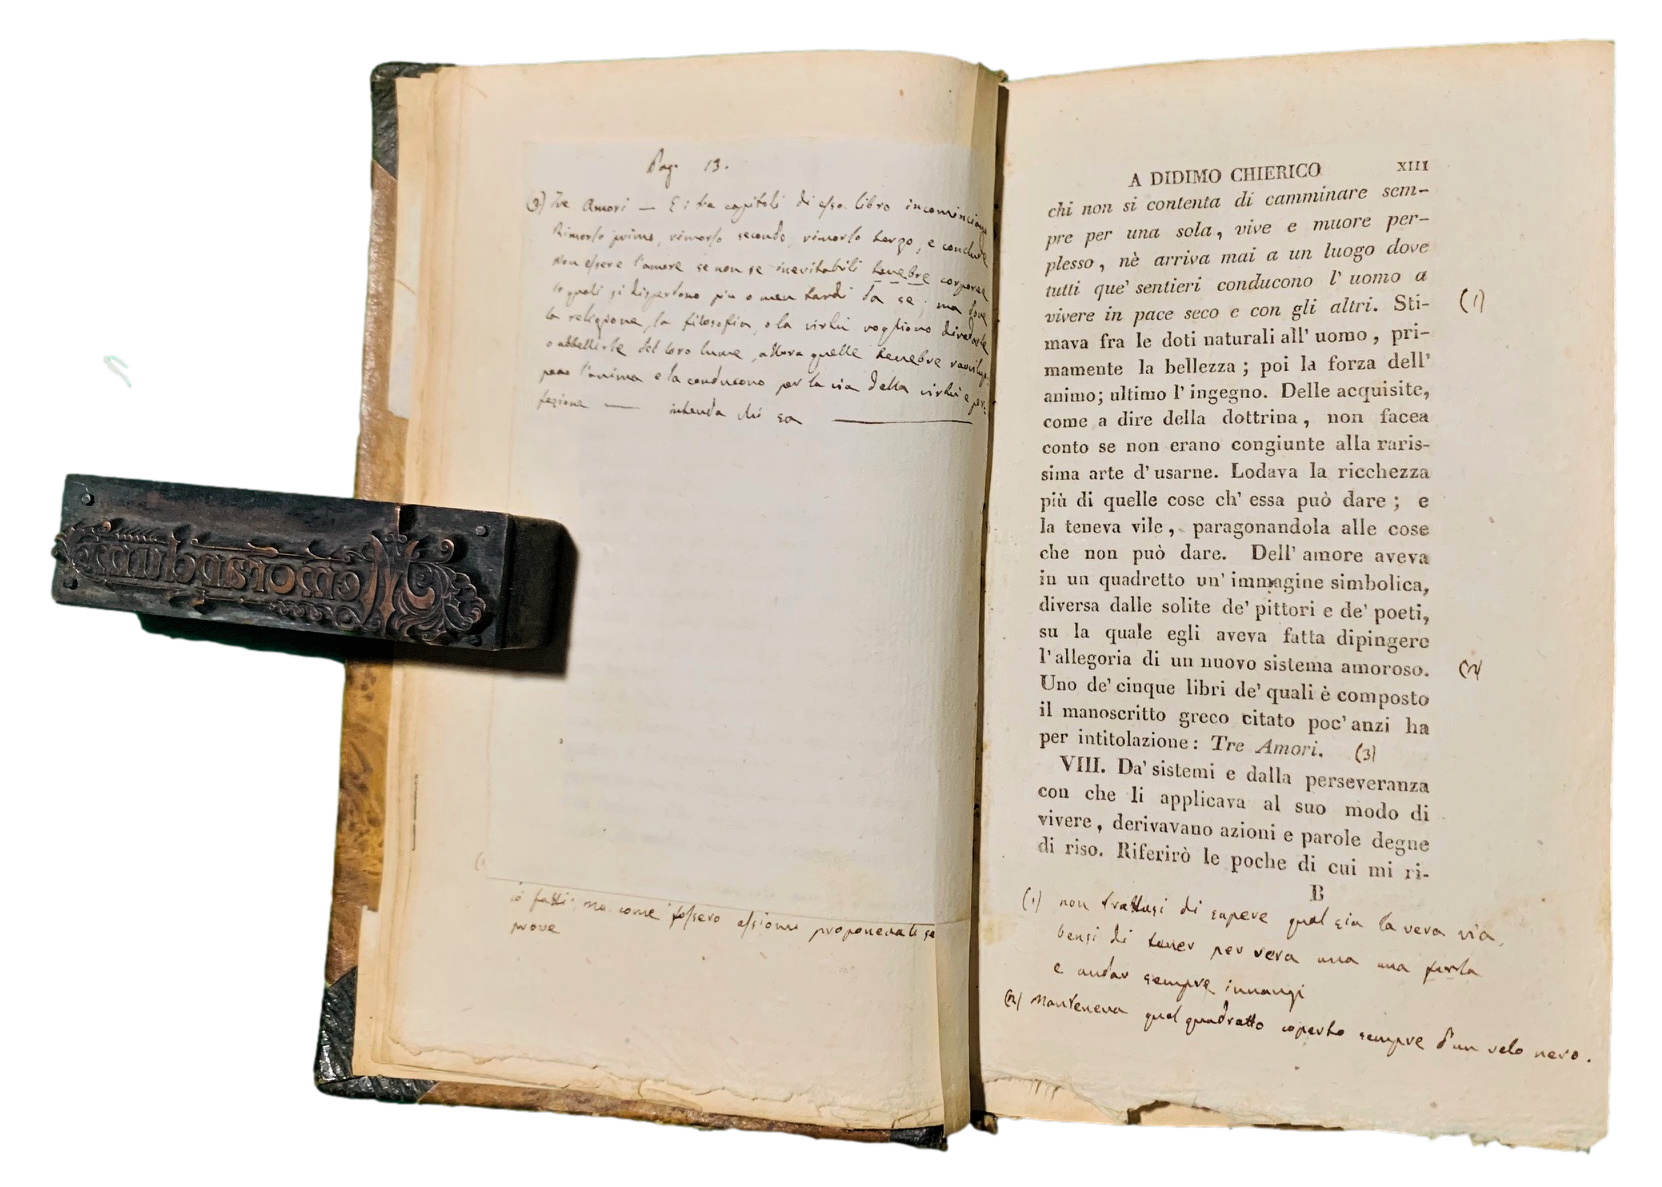 Pag. 13.
(3) Tre Amori — E i tre capitoli di esso libro incominciano
Rimorso primo, rimorso secondo, rimorso terzo, e conclude
non essere l'amore se non se inevitabili tenebre corporee
le quali si disperdono più o men tardi da se; ma dove
la religione, la filosofia, o la virtù vogliono diradarle
o abbellirle del loro lume, allora quelle tenebre ravvilup-
pano l'anima e la conducono per la via della virtù e per-
fezione — intenda chi sa
ò fatti. ma come fossero assiomi proponevali se
prove
Memorandums
A DIDIMO CHIERICO XIII
chi non si contenta di camminare sem-
pre per una sola, vive e muore per-
plesso, nè arriva mai a un luogo dove
tutti que' sentieri conducono l'uomo a
vivere in pace seco e con gli altri. Sti- (1)
mava fra le doti naturali all' uomo, pri-
mamente la bellezza; poi la forza dell'
animo; ultimo l' ingegno. Delle acquisite,
come a dire della dottrina, non facea
conto se non erano congiunte alla raris-
sima arte d' usarne. Lodava la ricchezza
più di quelle cose ch' essa può dare; e
la teneva vile, paragonandola alle cose
che non può dare. Dell' amore aveva
in un quadretto un' immagine simbolica,
diversa dalle solite de' pittori e de' poeti,
su la quale egli aveva fatta dipingere
l'allegoria di un nuovo sistema amoroso. (2)
Uno de' cinque libri de' quali è composto
il manoscritto greco citato poc' anzi ha
per intitolazione: Tre Amori. (3)
VIII. Da' sistemi e dalla perseveranza
con che li applicava al suo modo di
vivere, derivavano azioni e parole degne
di riso. Riferirò le poche di cui mi ri-
B
(1) non trattasi di sapere qual sia la vera via,
bensì di tener per vera una
e andar sempre innanzi
(2) Manteneva quel quadretto coperto sempre d'un velo nero.